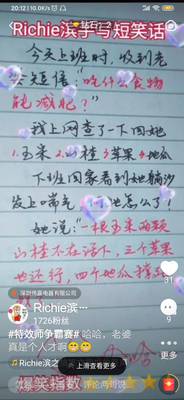 20:12 | 10.0K/s
Richie滨手写短笑话
今天上班时，收到老
婆短信“吃什么食物
能减肥？”
我上网查了一下回她
1.玉米 2.山楂 3.苹果 4.地瓜
下班回家看到她躺沙
发上
她说：“一根玉米两颗
山楂不在话下，三个苹果
也还行，四个地瓜
哈
深圳伟嘉电器有限公司
Richie滨…
1726粉丝
#特效师争霸赛 哈哈，老婆
真是个人才啊
Richie滨之
上滑查看更多
爆笑指数
评论两句说
31